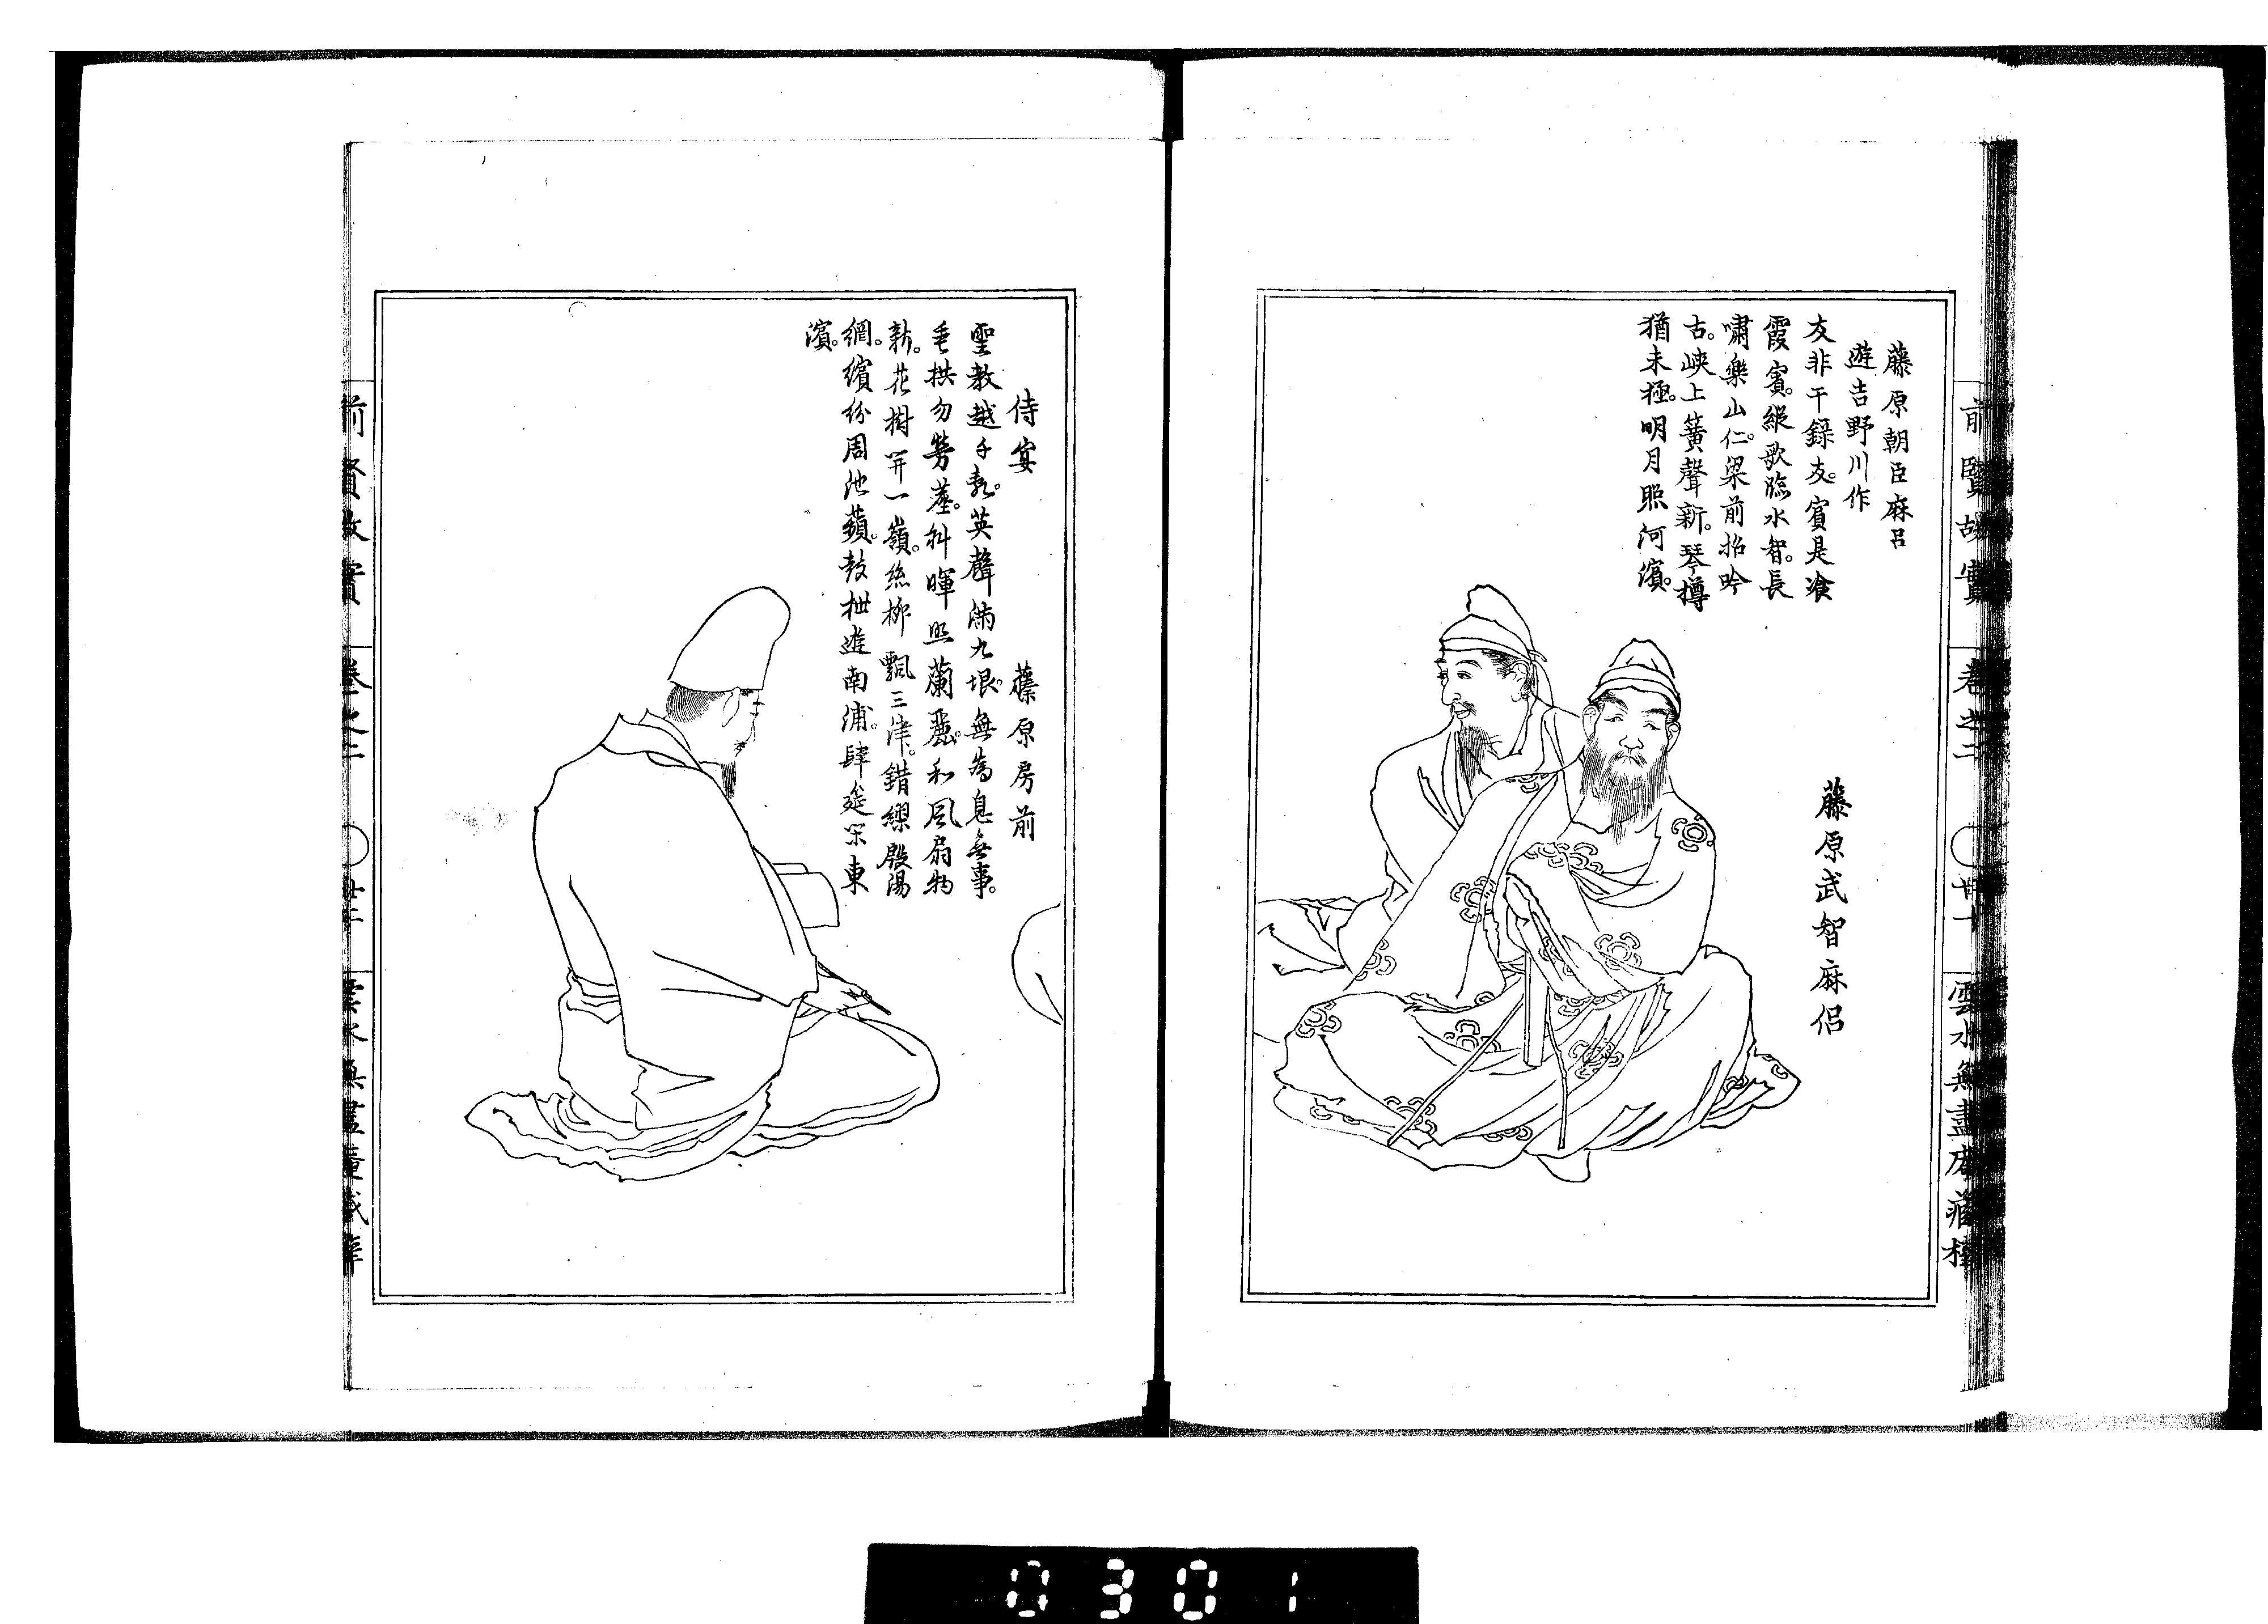 前賢故實 卷之二 〇 雲水無盡庵藏梓
藤原朝臣麻呂
遊吉野川作
友非干錄友。賓是飡
霞賓。縱歌臨水智。長
嘯樂山仁。梁前招吟
古。峽上簧聲新。琴樽
猶未極。明月照河濱。
藤原武智麻侶
侍宴 藤原房前
聖教越千禩。英聲滿九垠。無為息無事。
垂拱勿勞塵。斜暉照蘭麗。和風扇物
新。花樹開一嶺。絲柳飄三津。錯繆殷湯
網。繽紛周池蘋。鼓枻遊南浦。肆筵樂東
濱。
前賢故實 卷之二 〇
0301